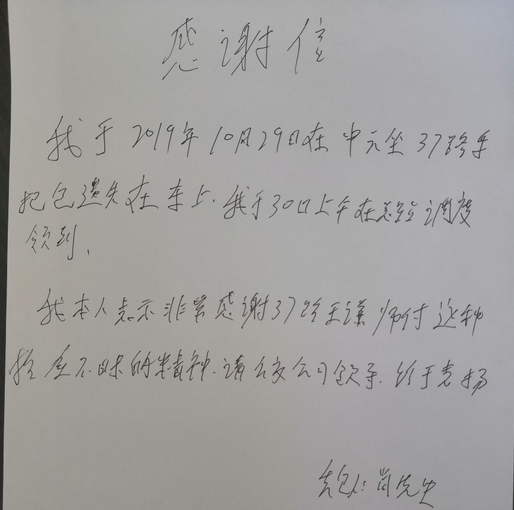 感谢信
我于2019年10月29日在中元坐37路车
把包遗失在车上.我于30日上午在总站调度
领到.
我本人表示非常感谢37路王谋师付这种
拾金不昧的精神.请公交公司领导.给于表扬
失包人:肖先生